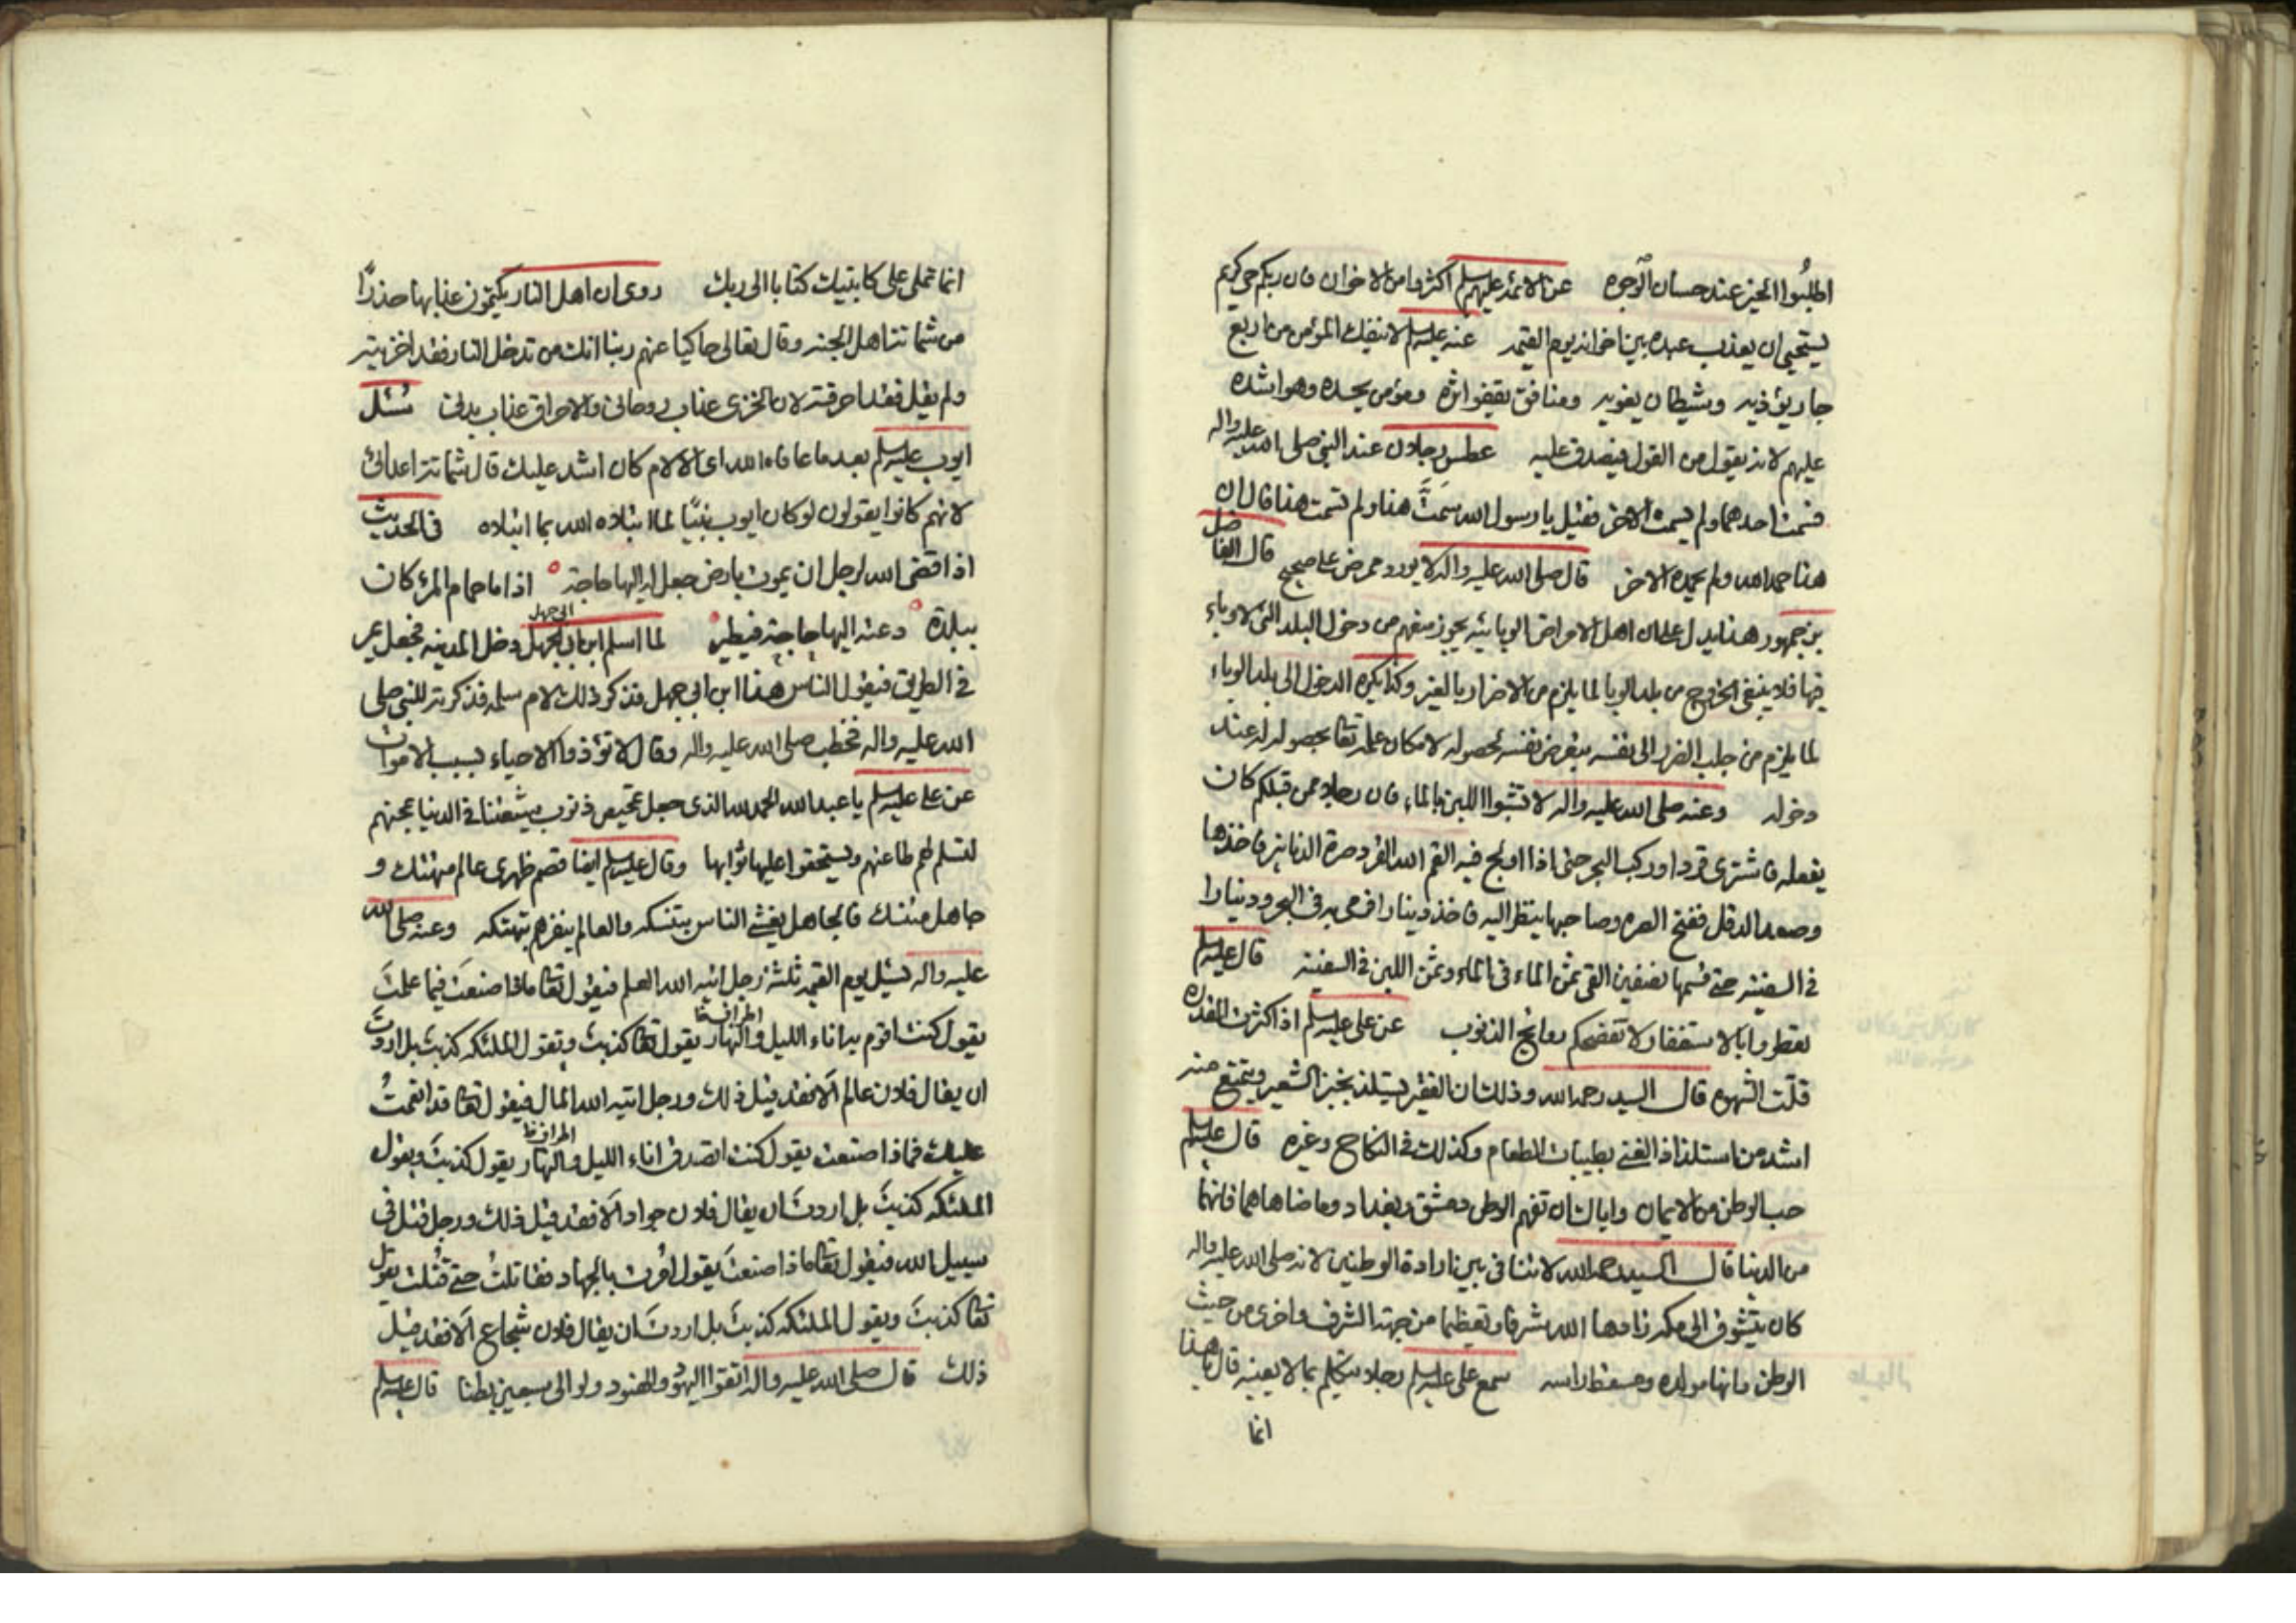 اطلبُوا الخير عند حسان الوجوه عن الائمة عليهم السلم اكثروا من الاخوان فان ربكم حيّ كريم
يستحيى ان يعذب عبده بين اخوانه يوم القيمة عنه عليه السلم لا ينفك المؤمن من اربع
جار يؤذيه وشيطان يغويه ومنافق يقفوا اثره ومؤمن يحسده وهو اشده
عليهم لانه يقول من القول فيصدق عليه عطس رجلان عند النبي صلى الله عليه واله
فسمت احدهما ولم يسمت الاخر فقيل يا رسول الله سمّتَّ هذا ولم تسمت هذا قال ان
هذا حمد الله ولم يحمده الاخر قال صلى الله عليه واله لا يورد ممرض على مصح قال الفاضل
بن جمهور هذا يدل على ان اهل الامراض الوبائيه يجوز منعهم من دخول البلد التى لا وباء
فيها فلا ينبغى الخروج من بلد الوبا لما يلزم من الاضرار بالغير وكذا يكره الدخول الى بلد الوباء
لما يلزم من جلب الضرر الى نفسه بتعريض نفسه لحصوله لامكان علمه تعا بحصوله له عند
دخوله وعنه صلى الله عليه واله لا تشوبوا اللبن بالماء فان رجلا ممن قبلكم كان
يفعله فاشترى قردا وركب البحر حتى اذا اولج فيه الهم الله القرد صرة الدنانير فاخذها
وصعد الدقل ففتح الصره وصاحبها ينظر اليه فاخذ دينارا فرمى به فى البحر ودينارا
فى السفينه حتى قسمها نصفين القى ثمن الماء فى الماء وثمن اللبن فى السفينة قال عليه السلم
تعطروا بالاستغفار لا تفضحكم روائح الذنوب عن على عليه السلم اذا كثرت المقدره
قلّت الشهوه قال السيد رحمه الله وذلك ان الفقير يستلذ بخبز الشعير ويتمتع منه
اشد من استلذاذ الغنى بطيبات الطعام وكذلك فى النكاح وغيره قال عليه السلم
حب الوطن من الايمان واياك ان تفهم الوطن دمشق وبغداد وما ضاهاهما فانهما
من الدنيا قال السيد رحمه الله لا تنافى بين ارادة الوطنين لانه صلى الله عليه واله
كان يتشوق الى مكه زادها الله شرفا وتعظيما من جهة الشرف واخرى من حيث
الوطن فانها مولده ومسقط راسه سمع على عليه السلم رجلا يتكلم بما لا يعنيه قال يا هذا
انما
انما تملى على كاتبيك كتابا الى ربك روى ان اهل النار يكتمون عذابها حذرًا
من شماتة اهل الجنه وقال تعالى حاكيا عنهم ربنا انك من تدخل النار فقد اخزيته
ولم يقل فقد احرقته لان الخزى عذاب روحانى والاحراق عذاب بدنى سُئل
ايوب عليه السلم بعد ما عافاه الله اى الالام كان اشد عليك قال شماتة اعدائى
لانهم كانوا يقولون لو كان ايوب نبيّا لما ابتلاه الله بما ابتلاه فى الحديث
اذا قضى الله لرجل ان يموت بارض جعل له اليها حاجة اذا ما حمام المرء كان
ببلدة دعته اليها حاجة فيطير لما اسلم ابن ابى جهل دخل المدينه فجعل يمر
فى الطريق فيقول الناس هذا ابن ابى جهل فذكر ذلك لام سلمه فذكرته للنبى صلى
الله عليه واله فخطب صلى الله عليه واله وقال لا تؤذوا الاحياء بسبب الاموات
عن على عليه السلم يا عبد الله الحمد لله الذى جعل تمحيص ذنوب شيعتنا فى الدنيا بمحنهم
لتسلم لهم طاعتهم ويستحقوا عليها ثوابها وقال عليه السلم ايضا قصم ظهرى عالم متهتك و
جاهل متنسك فالجاهل يغش الناس بتنسكه والعالم ينفرهم بتهتكه وعنه صلى الله
عليه واله يسئل يوم القيمه ثلثة رجل اتيه الله العلم فيقول تعا ماذا صنعتَ فيما علمتَ
يقول كنت اقوم به اناء الليل واطراف النهار يقول تعا كذبت وتقول الملئكه كذبت بل اردتَ
ان يقال فلان عالم الا فقد قيل ذلك ورجل اتيه الله المال فيقول تعا قد انعمتُ
عليك فماذا صنعت يقول كنت اتصدق اناء الليل واطراف النهار يقول كذبتَ ويقول
الملئكه كذبتَ بل اردتَ ان يقال فلان جواد الا فقد قيل ذلك ورجل قتل فى
سبيل الله فيقول تعا ماذا صنعتَ يقول امُرت بالجهاد فقاتلتُ حتى قُتلت يقول
تعا كذبتَ ويقول الملئكه كذبتَ بل اردتَ ان يقال فلان شجاع الا فقد قيل
ذلك قال صلى الله عليه واله اتقوا اليهود والهنود ولو الى سبعين بطنا قال عليه السلم